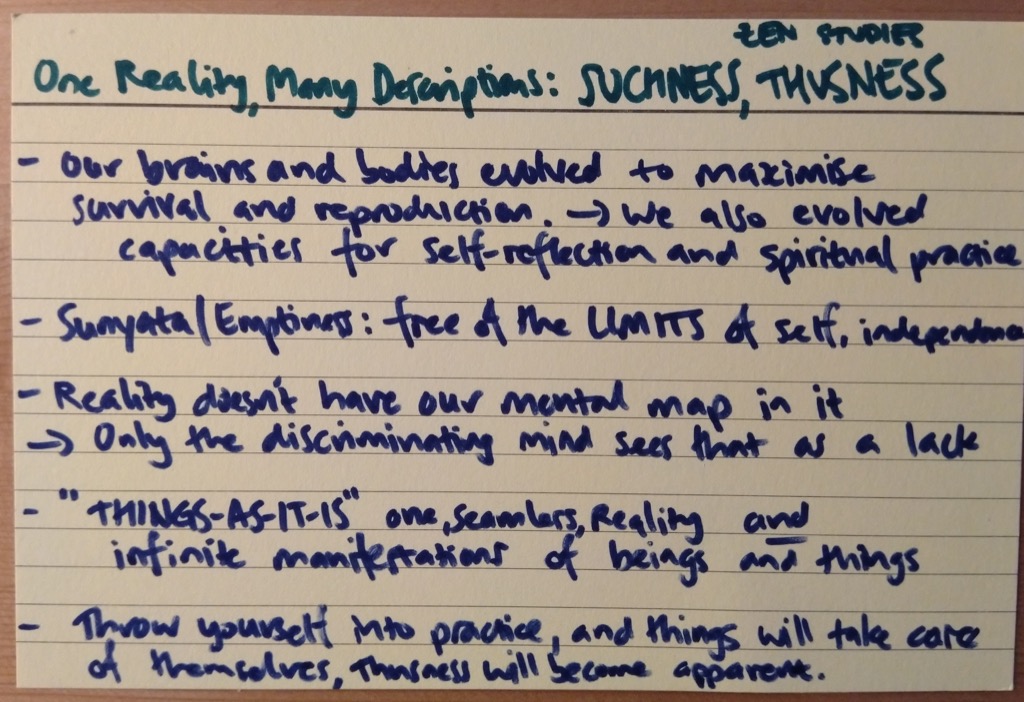 ZEN STUDIES
One Reality, Many Descriptions: SUCHNESS, THUSNESS
- Our brains and bodies evolved to maximise
survival and reproduction. → We also evolved
capacities for self-reflection and spiritual practice
- Sunyata/Emptiness: free of the LIMITS of self, independence
- Reality doesn't have our mental map in it
→ Only the discriminating mind sees that as a lack
- "THINGS-AS-IT-IS" one, seamless, Reality and
infinite manifestations of beings and things
- Throw yourself into practice, and things will take care
of themselves, Thusness will become apparent.